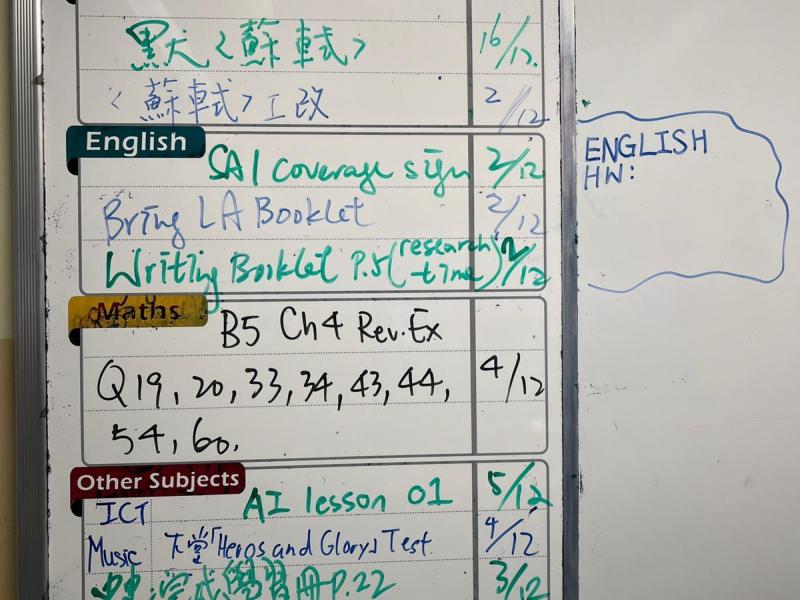 默犬〈蘇軾〉 16/12.
〈蘇軾〉工改 2/12
English
SA1 coverage sign 2/12
Bring LA Booklet 2/12
Writing Booklet P.5 (research time) 2/12
Maths
B5 Ch4 Rev.Ex
Q19, 20, 33, 34, 43, 44, 4/12
54, 60.
Other Subjects
ICT AI lesson 01 5/12
Music 下堂「Heros and Glory」Test 4/12
完成學習冊P.22 3/12
ENGLISH
HW: